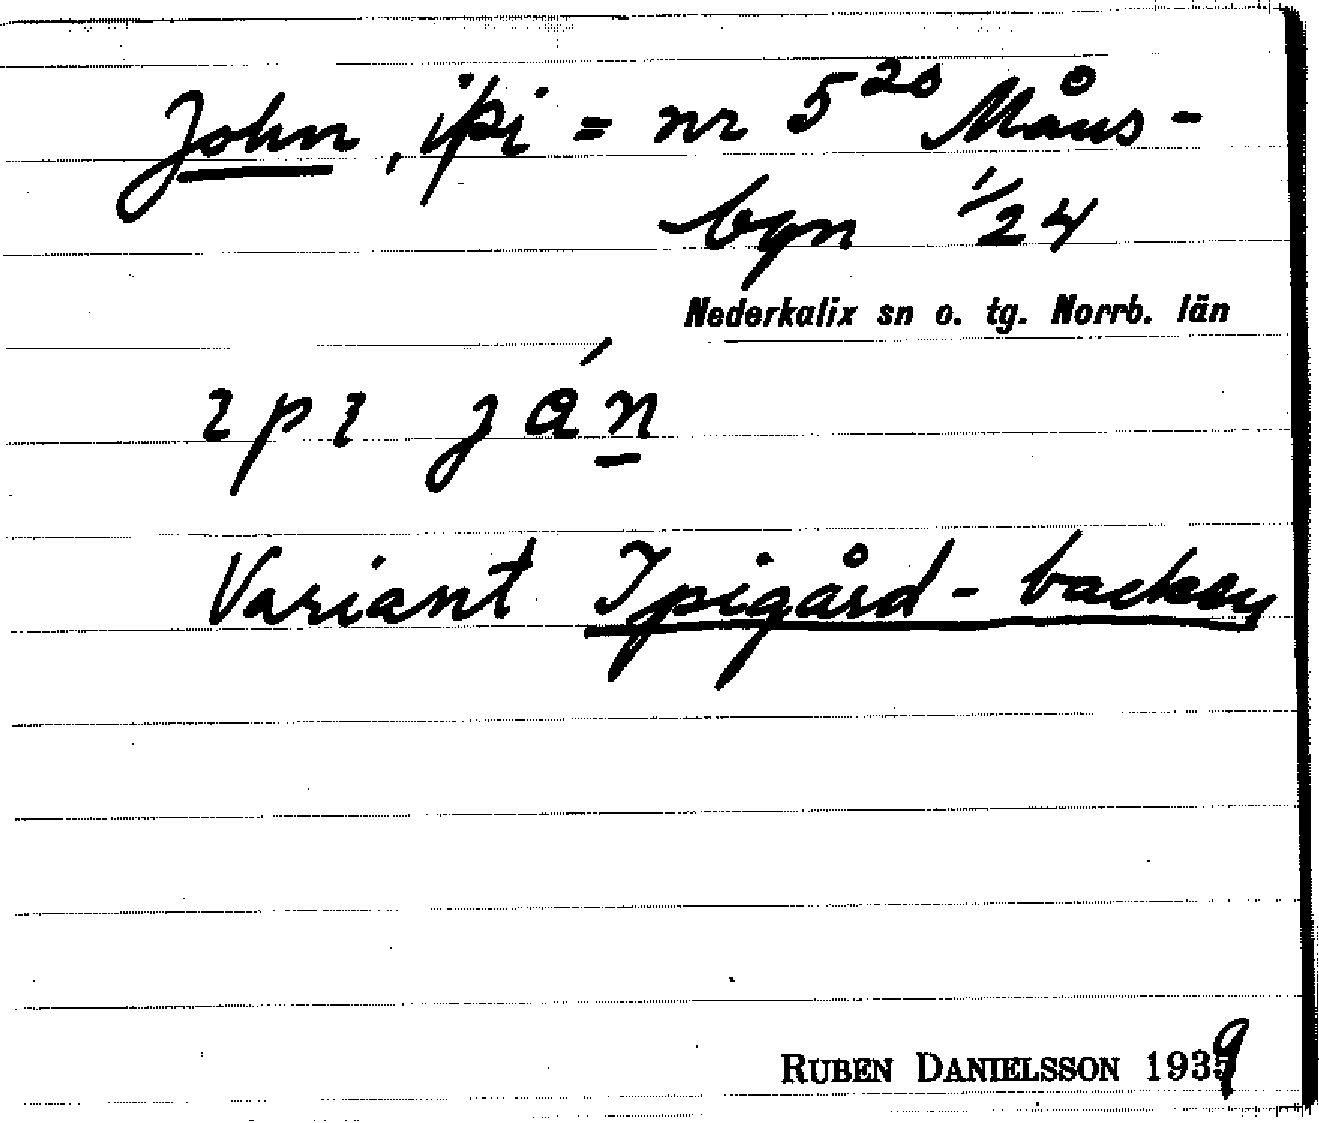 John, ipi = nr 5²⁰ Måns-
byn 1/24
Nederkalix sn o. tg. Norrb. län
ɩpɩ ján̲
Variant Ipigård-backen
RUBEN DANIELSSON 1939